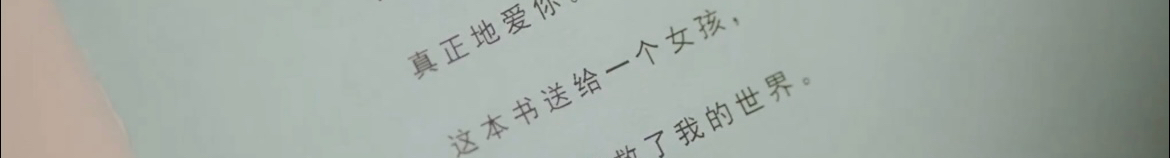 真正地爱你。
这本书送给一个女孩，
救了我的世界。